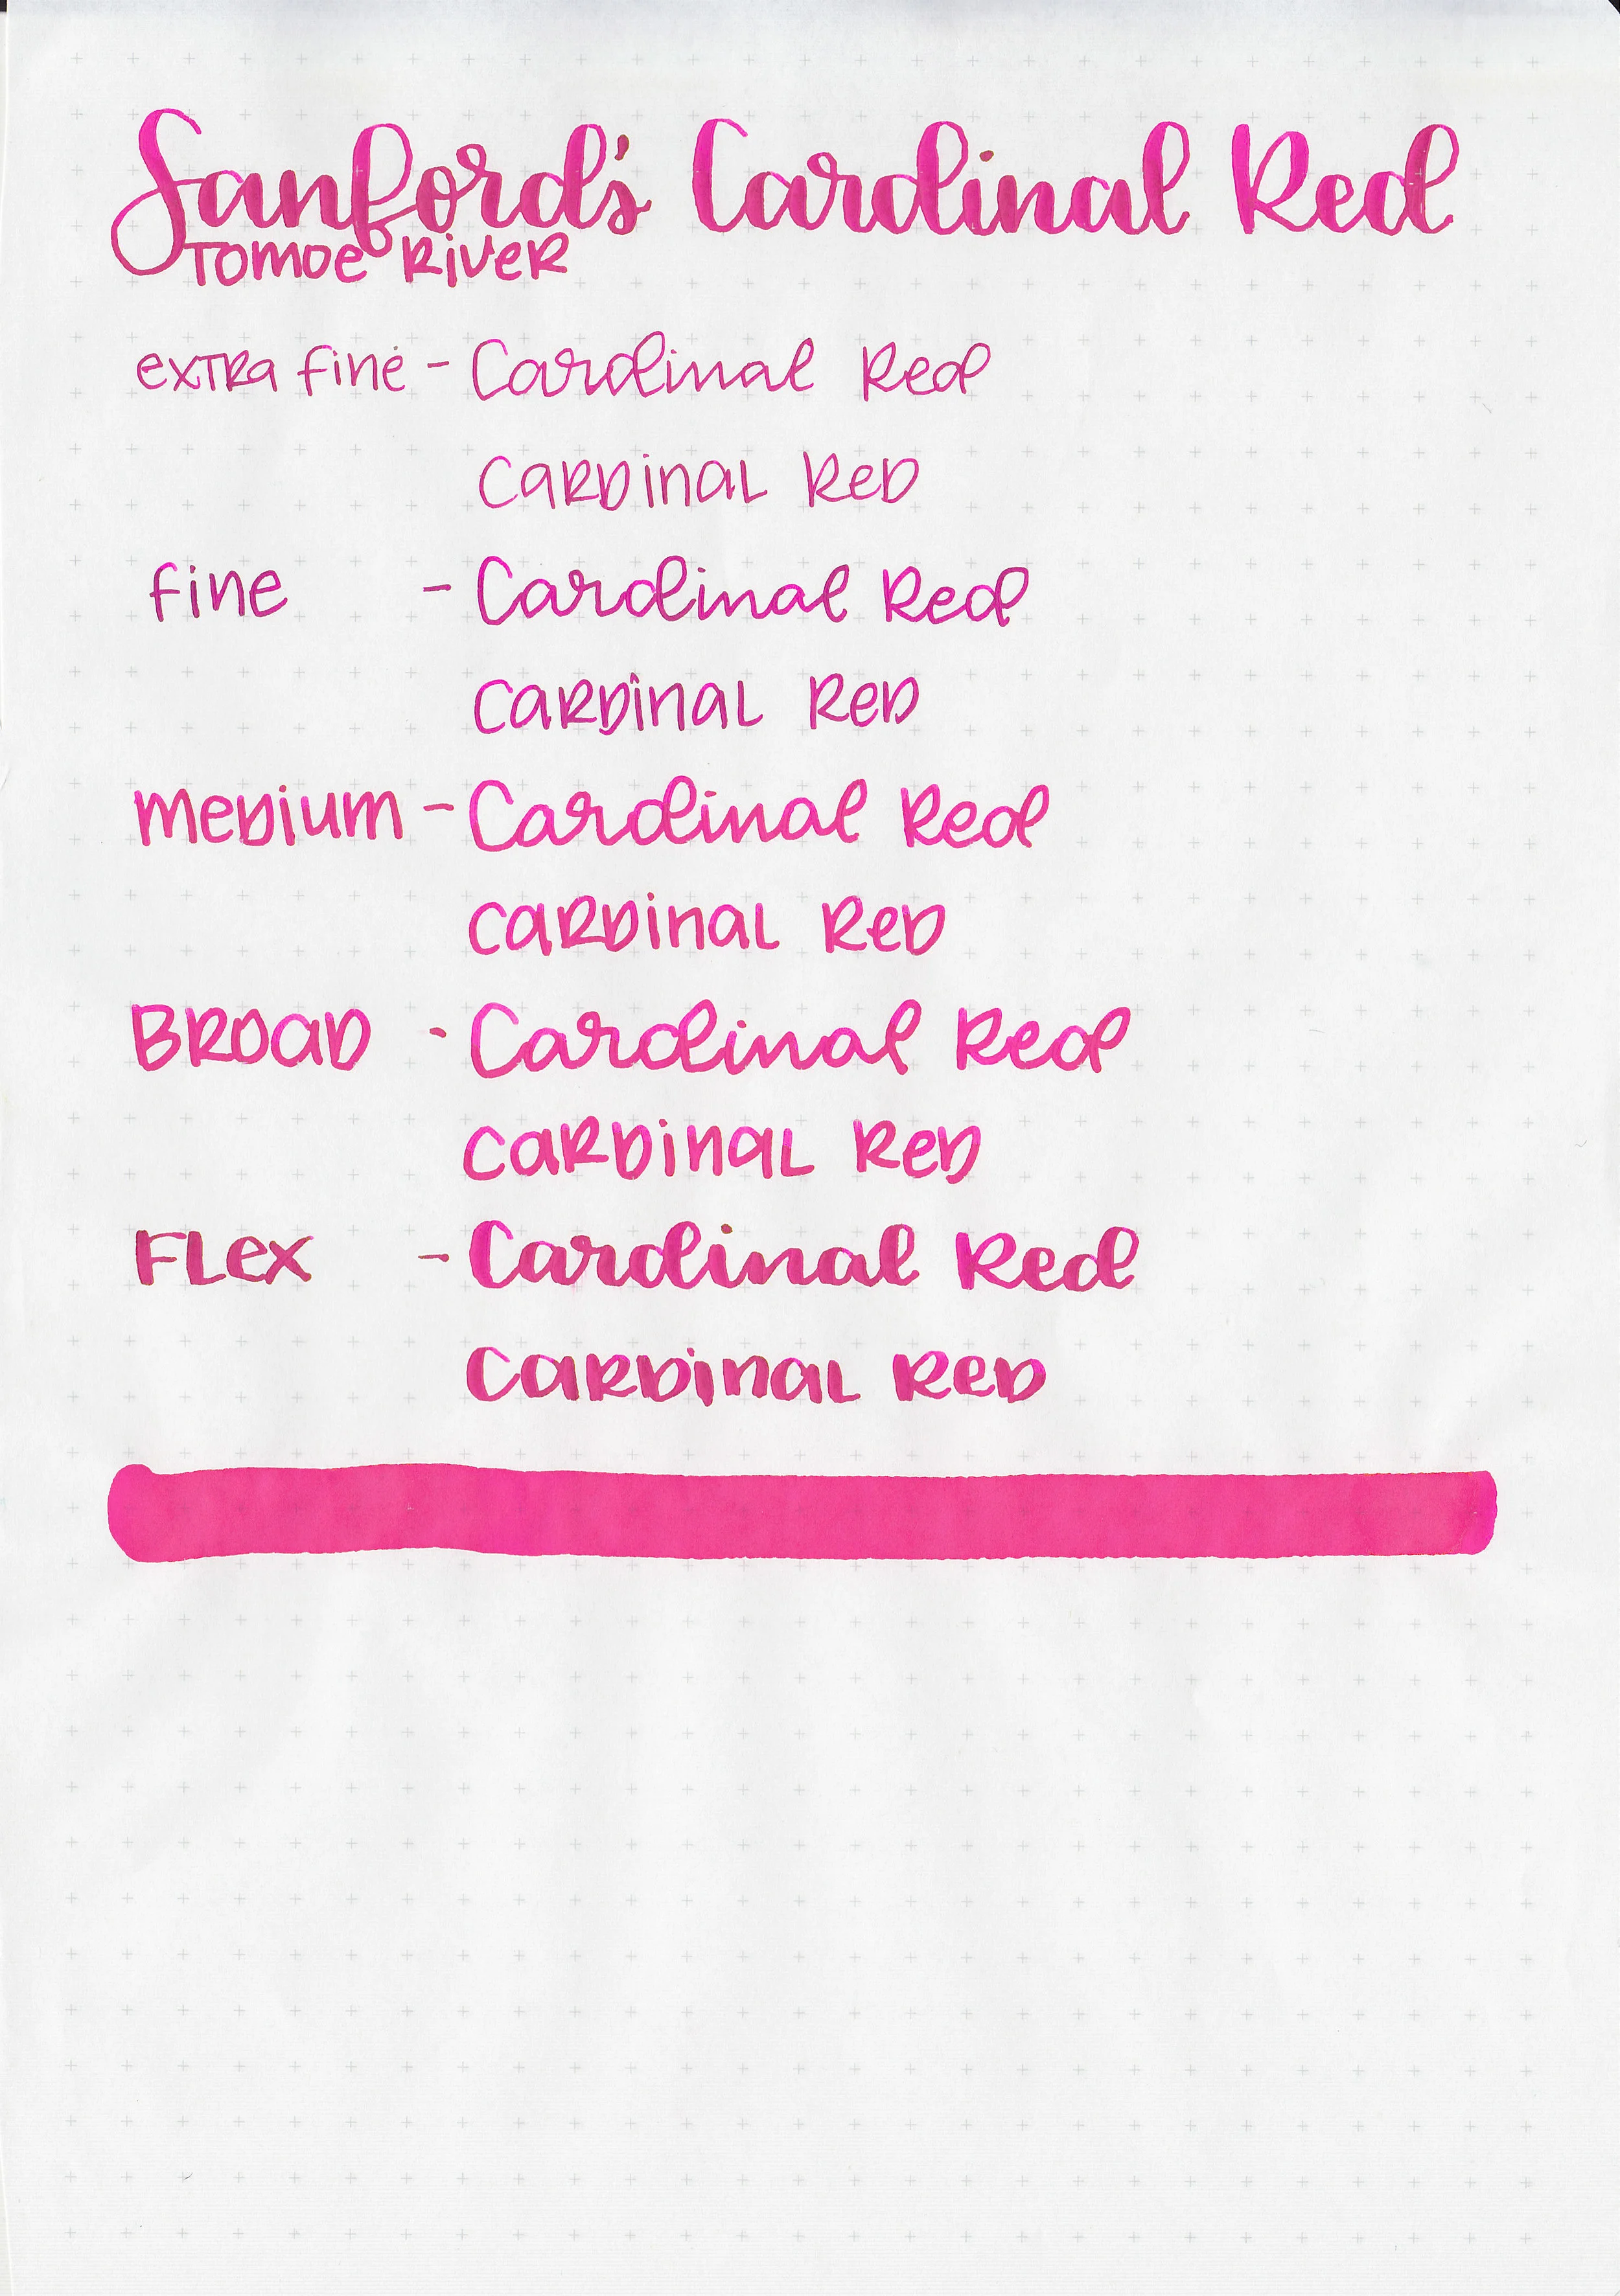 Sanford's Cardinal Red
Tomoe River
extra fine - Cardinal Red
Cardinal Red
fine - Cardinal Red
Cardinal Red
Medium - Cardinal Red
Cardinal Red
Broad - Cardinal Red
Cardinal Red
Flex - Cardinal Red
Cardinal Red